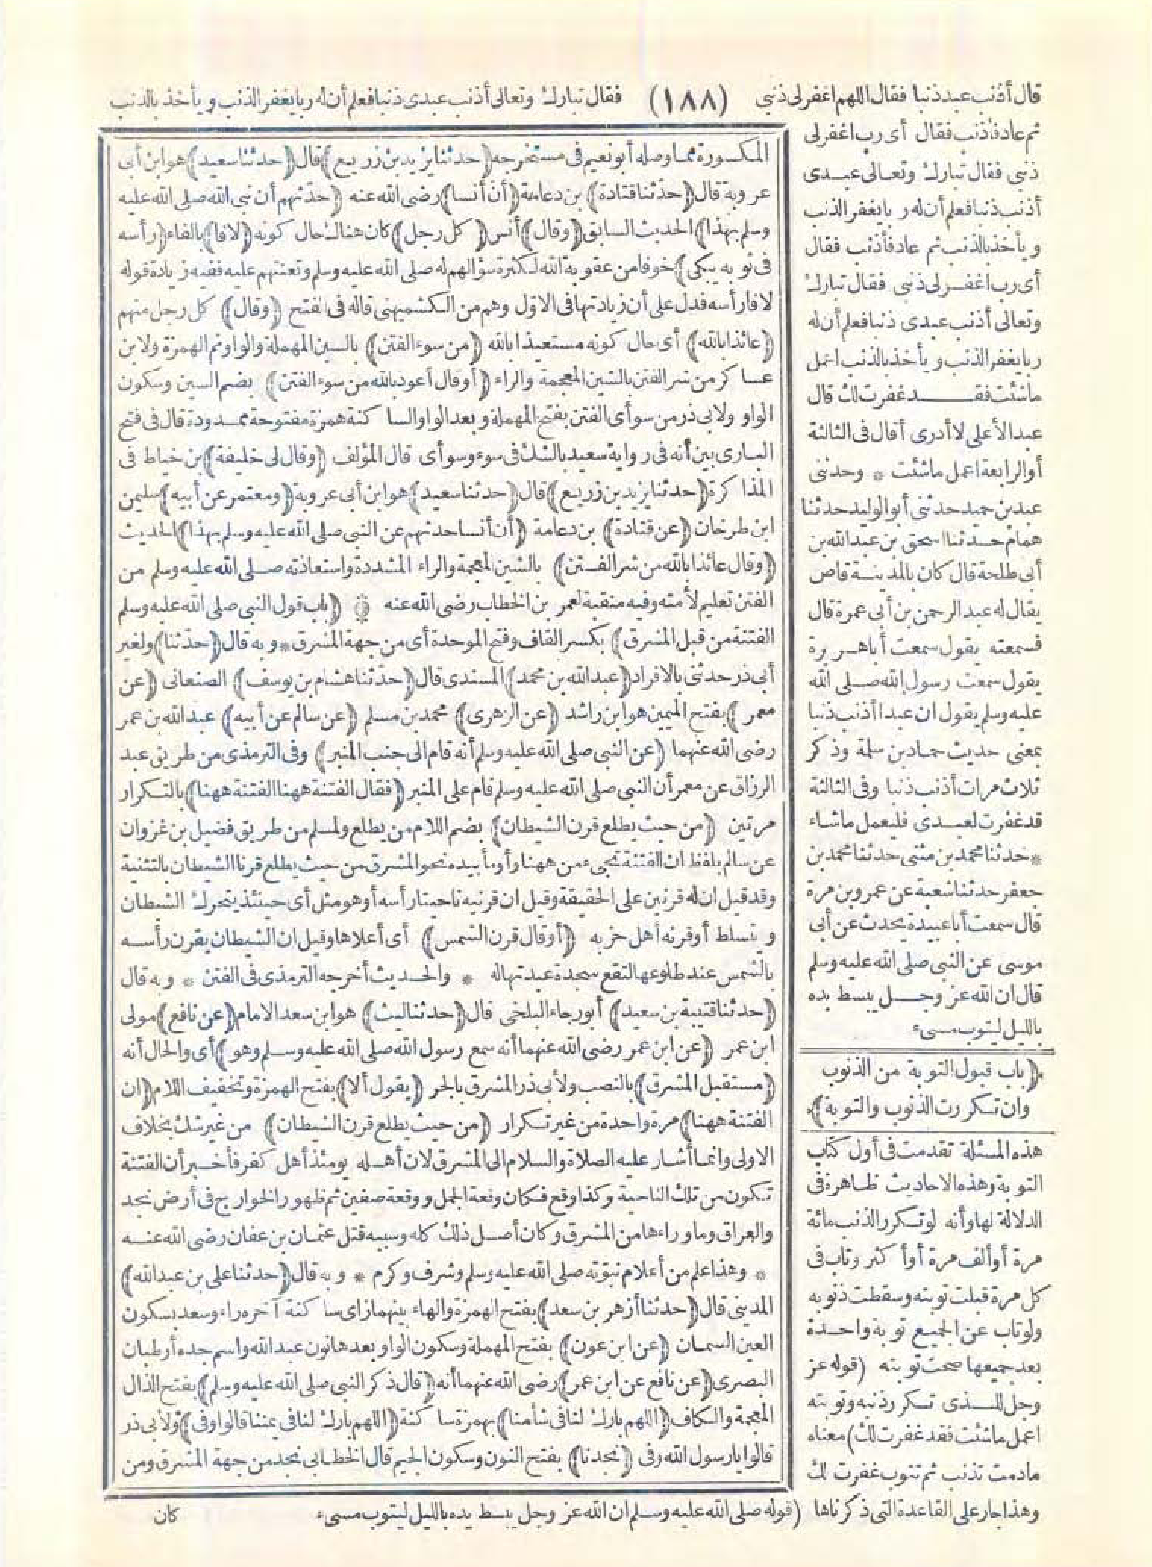 قال أذنب عبد ذنبا فقال اللهم اغفر لى ذنبى (١٨٨) فقال تبارك وتعالى أذنب عبدى ذنبا فعلم أن له ربا يغفر الذنب ويأخذ بالذنب
ثم عاد فأذنب فقال أى رب اغفر لى
ذنبى فقال تبارك وتعالى عبدى
أذنب ذنبا فعلم أن له ربا يغفر الذنب
ويأخذ بالذنب ثم عاد فأذنب فقال
أى رب اغفر لى ذنبى فقال تبارك
وتعالى أذنب عبدى ذنبا فعلم أن له
ربا يغفر الذنب ويأخذ بالذنب اعمل
ماشئت فقد غفرت لك قال
عبد الأعلى لا أدرى أقال فى الثالثة
أو الرابعة اعمل ماشئت * وحدثنى
عبد بن حميد حدثنى أبو الوليد حدثنا
همام حدثنا اسحق بن عبد الله بن
أبى طلحة قال كان بالمدينة قاص
يقال له عبد الرحمن بن أبى عمرة قال
فسمعته يقول سمعت أبا هريرة
يقول سمعت رسول الله صلى الله
عليه وسلم يقول ان عبدا أذنب ذنبا
بمعنى حديث حماد بن سلمة وذكر
ثلاث مرات أذنب ذنبا وفى الثالثة
قد غفرت لعبدى فليعمل ماشاء
* حدثنا محمد بن مثنى حدثنا محمد بن
جعفر حدثنا شعبة عن عمرو بن مرة
قال سمعت أبا عبيدة يحدث عن أبى
موسى عن النبى صلى الله عليه وسلم
قال ان الله عز وجل يبسط يده
بالليل ليتوب مسىء
(باب قبول التوبة من الذنوب
وان تكررت الذنوب والتوبة)
هذه المسئلة تقدمت فى أول كتاب
التوبة وهذه الاحاديث ظاهرة فى
الدلالة لها وأنه لو تكرر الذنب مائة
مرة أو ألف مرة أو أكثر وتاب فى
كل مرة قبلت توبته وسقطت ذنوبه
ولو تاب عن الجميع توبة واحدة
بعد جميعها صحت توبته (قوله عز
وجل للذى تكرر ذنبه وتوبته
اعمل ماشئت فقد غفرت لك) معناه
مادمت تذنب ثم تتوب غفرت لك
وهذا جار على القاعدة التى ذكرناها (قوله صلى الله عليه وسلم ان الله عز وجل يبسط يده بالليل ليتوب مسىء
المكسورة مما وصله أبو نعيم فى مستخرجه (حدثنا يزيد بن زريع) قال (حدثنا سعيد) هو ابن أبى
عروبة قال (حدثنا قتادة) بن دعامة (أن أنسا) رضى الله عنه (حدثهم أن نبى الله صلى الله عليه
وسلم بهذا) الحديث السابق (وقال) أنس (كل رجل) كان هنالك حال كونه (لافا) بالفاء (رأسه
فى ثوبه يبكى) خوفا من عقوبة الله لكثرة سؤالهم له صلى الله عليه وسلم وتعنتهم عليه ففيه زيادة قوله
لافا رأسه فدل على أن زيادتها فى الاول وهم من الكشميهنى قاله فى الفتح (وقال) كل رجل منهم
(عائذا بالله) أى حال كونه مستعيذا بالله (من سوء الفتن) بالسين المهملة والواو ثم الهمزة ولابن
عساكر من شر الفتن بالشين المعجمة والراء (أو قال أعوذ بالله من سوء الفتن) بضم السين وسكون
الواو ولابى ذر من سوأى الفتن بفتح المهملة وبعد الواو الساكنة همزة مفتوحة ممدودة قال فى فتح
البارى بين أنه فى رواية سعيد بالشك فى سوء وسوأى قال المؤلف (وقال لى خليفة) بن خياط فى
المذاكرة (حدثنا يزيد بن زريع) قال (حدثنا سعيد) هو ابن أبى عروبة (ومعتمر عن أبيه) سليمن
ابن طرخان (عن قتادة) بن دعامة (أن أنسا حدثهم عن النبى صلى الله عليه وسلم بهذا) الحديث
(وقال عائذا بالله من شر الفتن) بالشين المعجمة والراء المشددة واستعاذته صلى الله عليه وسلم من
الفتن تعليم لأمته وفيه منقبة لعمر بن الخطاب رضى الله عنه (باب قول النبى صلى الله عليه وسلم
الفتنة من قبل المشرق) بكسر القاف وفتح الموحدة أى من جهة المشرق * وبه قال (حدثنا) ولغير
أبى ذر حدثنى بالافراد (عبد الله بن محمد) المسندى قال (حدثنا هشام بن يوسف) الصنعانى (عن
معمر) بفتح الميمين هو ابن راشد (عن الزهرى) محمد بن مسلم (عن سالم عن أبيه) عبد الله بن عمر
رضى الله عنهما (عن النبى صلى الله عليه وسلم أنه قام الى جنب المنبر) وفى الترمذى من طريق عبد
الرزاق عن معمر أن النبى صلى الله عليه وسلم قام على المنبر (فقال الفتنة ههنا الفتنة ههنا) بالتكرار
مرتين (من حيث يطلع قرن الشيطان) بضم اللام من يطلع ولمسلم من طريق فضيل بن غزوان
عن سالم بلفظ ان الفتنة تجىء من ههنا وأومأ بيده نحو المشرق من حيث يطلع قرنا الشيطان بالتثنية
وقد قيل ان له قرنين على الحقيقة وقيل ان قرنيه ناحيتا رأسه أو هو مثل أى حينئذ يتحرك الشيطان
ويتسلط أو قرنه أهل حزبه (أو قال قرن الشمس) أى أعلاها وقيل ان الشيطان يقرن رأسه
بالشمس عند طلوعها لتقع سجدة عبدتها له * والحديث أخرجه الترمذى فى الفتن * وبه قال
(حدثنا قتيبة بن سعيد) أبو رجاء البلخى قال (حدثنا ليث) هو ابن سعد الامام (عن نافع) مولى
ابن عمر (عن ابن عمر رضى الله عنهما أنه سمع رسول الله صلى الله عليه وسلم وهو) أى والحال أنه
(مستقبل المشرق) بالنصب ولأبى ذر المشرق بالجر (يقول ألا) بفتح الهمزة وتخفيف اللام (ان
الفتنة ههنا) مرة واحدة من غير تكرار (من حيث يطلع قرن الشيطان) من غير شك بخلاف
الاولى وانما أشار عليه الصلاة والسلام الى المشرق لان أهله يومئذ أهل كفر فأخبر أن الفتنة
تكون من تلك الناحية وكذا وقع فكان وقعة الجمل ووقعة صفين ثم ظهور الخوارج فى أرض نجد
والعراق وما وراءها من المشرق وكان أصل ذلك كله وسببه قتل عثمان بن عفان رضى الله عنه
* وهذا علم من أعلام نبوّته صلى الله عليه وسلم وشرف وكرم * وبه قال (حدثنا على بن عبد الله)
المدينى قال (حدثنا أزهر بن سعد) بفتح الهمزة والهاء بينهما زاى ساكنة آخره راء وسعد بسكون
العين السمان (عن ابن عون) بفتح المهملة وسكون الواو بعدها نون عبد الله واسم جده أرطبان
البصرى (عن نافع عن ابن عمر) رضى الله عنهما أنه (قال ذكر النبى صلى الله عليه وسلم) بفتح الذال
المعجمة والكاف (اللهم بارك لنا فى شأمنا) بهمزة ساكنة (اللهم بارك لنا فى يمننا قالوا وفى) ولأبى ذر
قالوا يا رسول الله وفى (نجدنا) بفتح النون وسكون الجيم قال الخطابى نجد من جهة المشرق ومن
كان